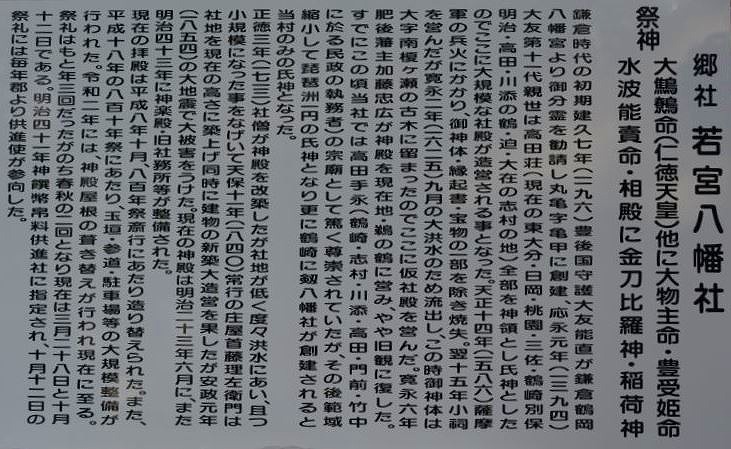 郷社 若宮八幡社
祭神 大鷦鷯命(仁徳天皇)他に大物主命・豊受姫命
水波能賣命・相殿に金刀比羅神・稲荷神
鎌倉時代の初期建久七年(一一九六)豊後国守護大友能直が鎌倉鶴岡
八幡宮より御分霊を勧請し丸亀字亀甲に創建、応永元年(一三九四)
大友第十代親世は高田荘(現在の東大分・日岡・桃園・三佐・鶴崎・別保
明治・高田・川添の鶴・迫・大在の志村の地)全部を神領とし氏神とした
のでここに大規模な社殿が造営される事となった。天正十四年(一五八六)薩摩
軍の兵火にかかり、御神体・縁起書・宝物の一部を除き焼失。翌十五年小祠
を営んだが寛永二年(一六二五)九月の大洪水のため流出し、この時御神体は
大字南榎ヶ瀬の古木に留まったのでここに仮社殿を営んだ。寛永六年
肥後藩主加藤忠広が神殿を現在地、鵜の鶴に営みやや旧観に復した。
すでにこの頃当社では高田手永(鶴崎・志村・川添・高田・門前・竹中
に於る民政の執務者)の宗廟として篤く尊崇されていたが、その後範域
縮小して琵琶洲一円の氏神となり更に鶴崎に剱八幡社が創建されると
当村のみの氏神となった。
正徳三年(一七一三)社僧が神殿を改築したが社地が低く度々洪水にあい、且つ
小規模になった事をなげいて天保十一年(一八四〇)常行の庄屋首藤理左衛門は
社地を現在の高さに築上げ同時に建物の新築大造営を果したが安政元年
(一八五四)の大地震で大被害をうけた。現在の神殿は明治二十三年六月に、また
明治四十三年に神楽殿・旧社務所等が整備された。
現在の拝殿は平成八年十月、八百年祭斎行にあたり造り替えられた。また、
平成十八年の八百十年祭にあたり、玉垣・参道・駐車場等の大規模整備が
行われた。令和二年には、神殿屋根の葺き替えが行われ現在に至る。
祭礼はもと年三回だったがのち春秋の二回となり現在は三月二十八日と十月
十二日である。明治四十年神饌幣帛料供進社に指定され、十月十二日の
祭礼には毎年郡より供進使が参向した。